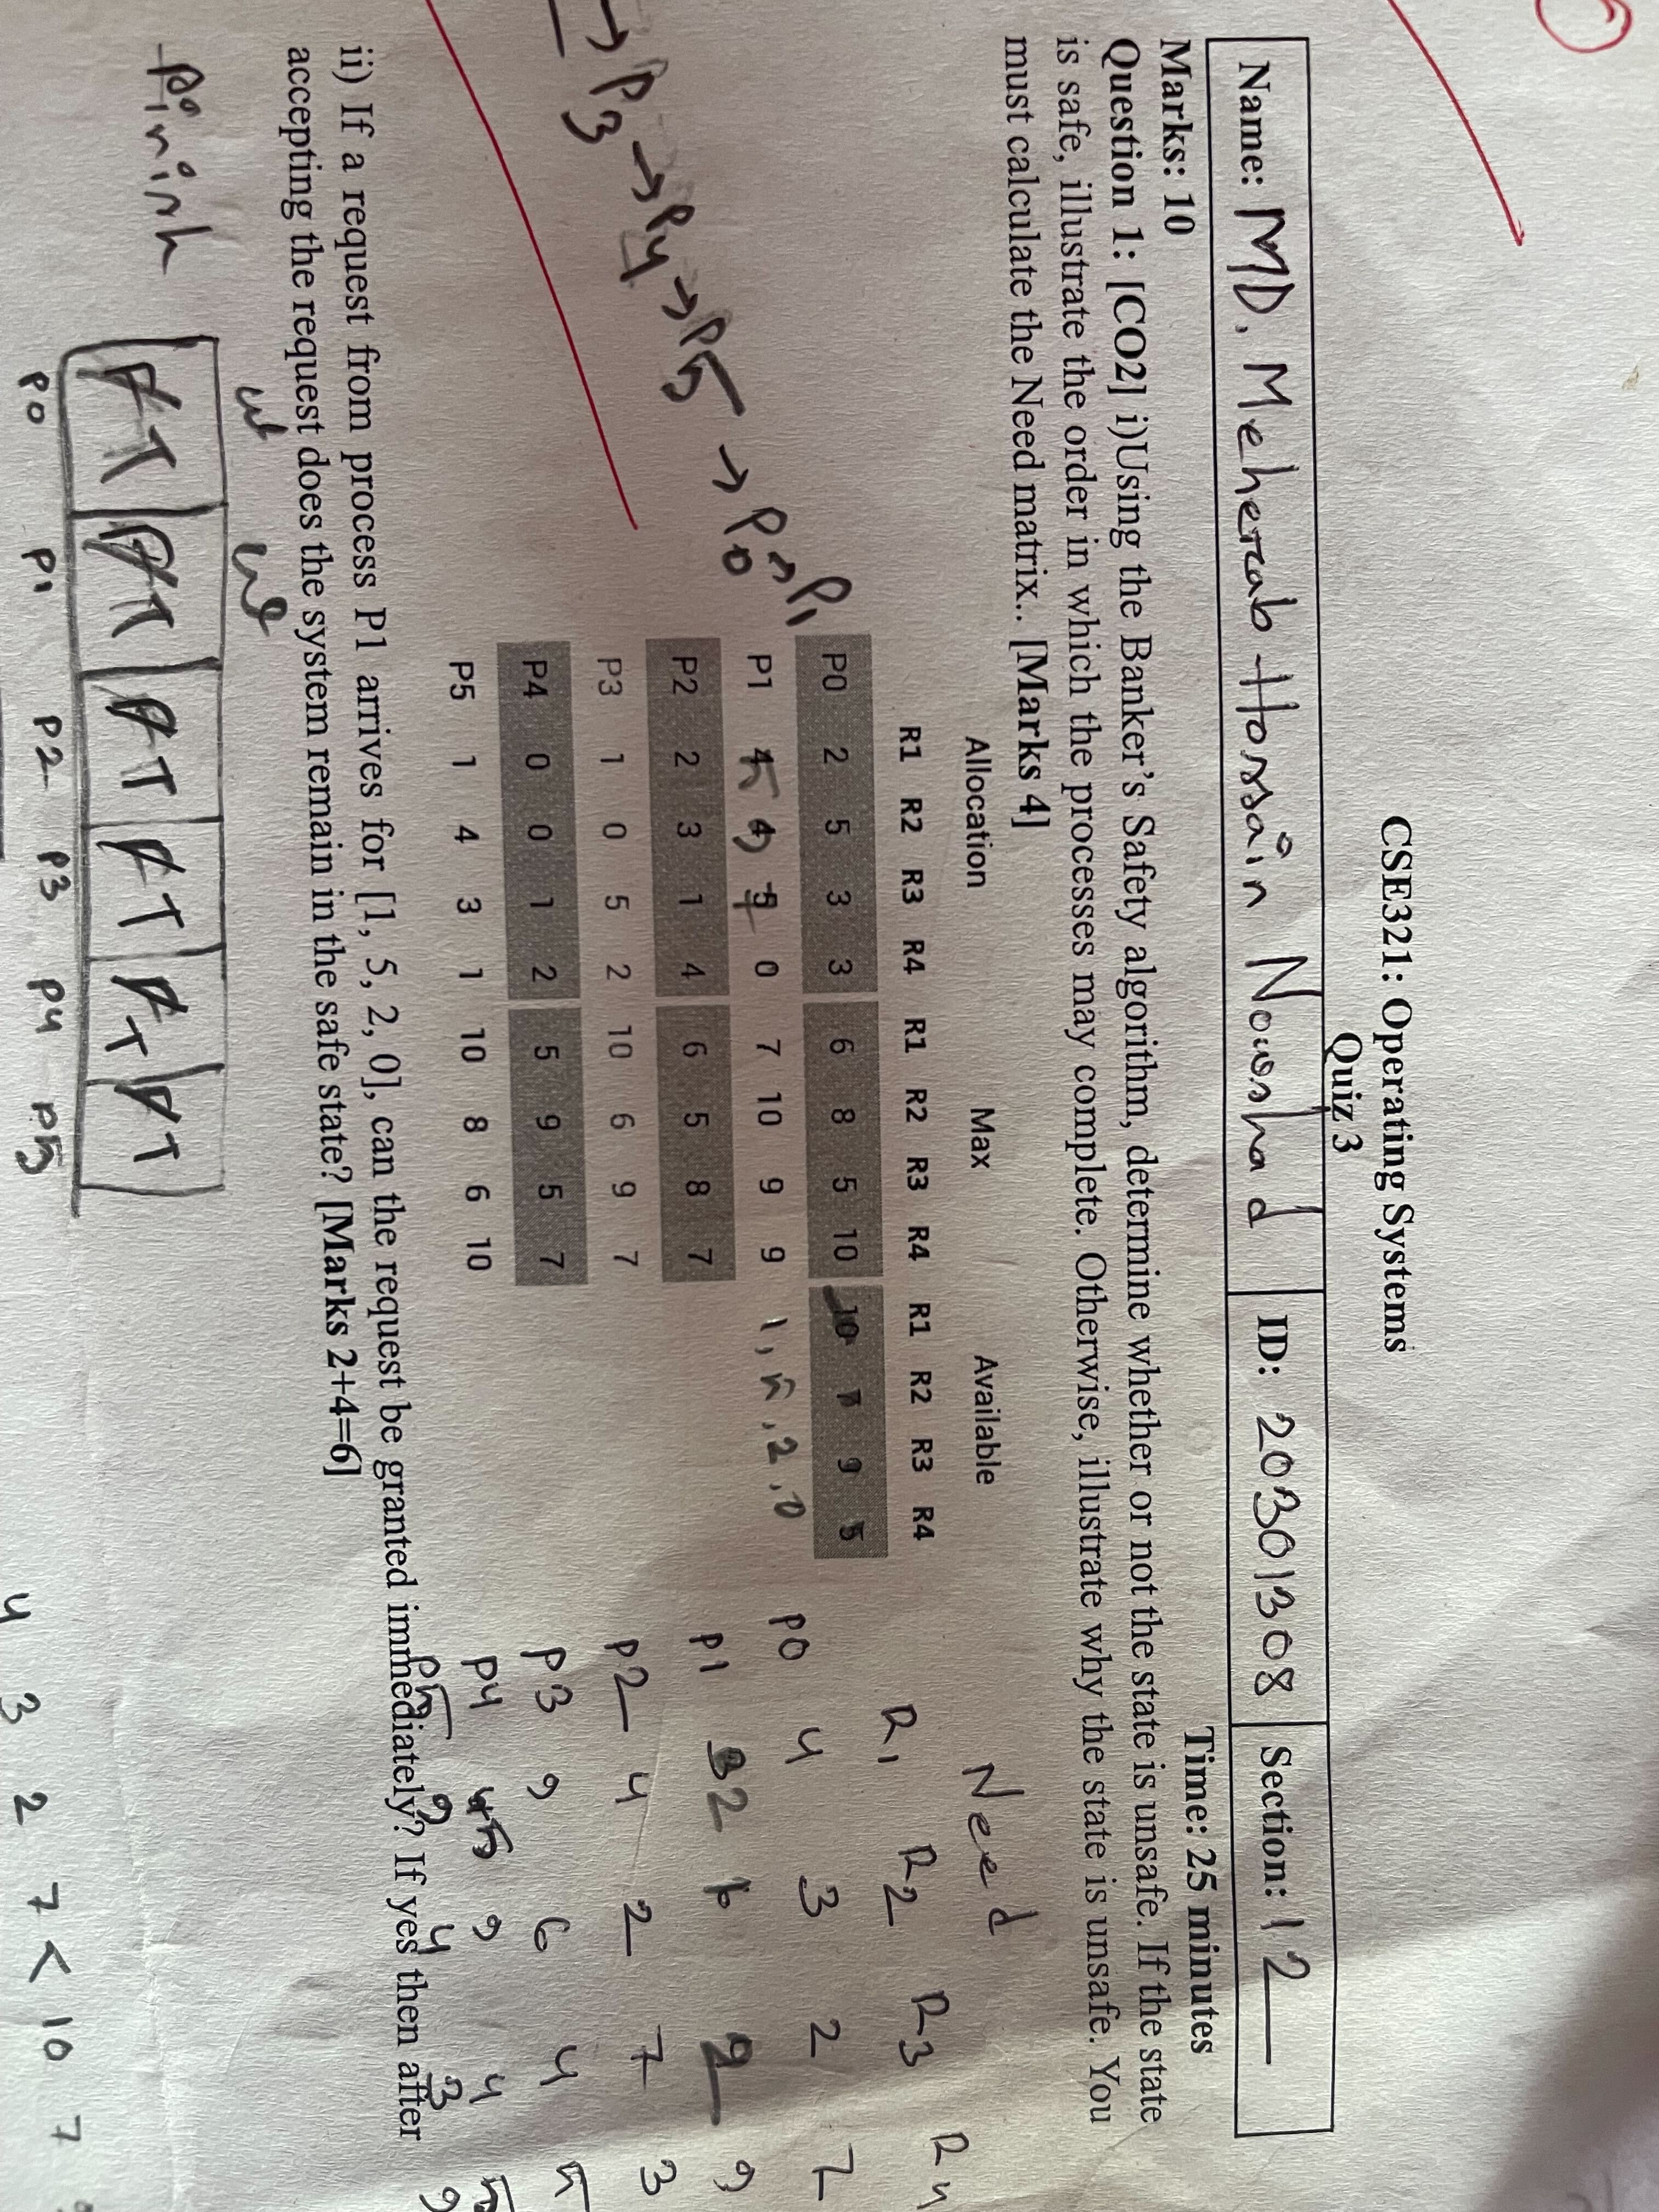 CSE321: Operating Systems
Quiz 3
Name: MD. Meherab Hossain Nowshad ID: 20301308 Section: 12
Marks: 10 Time: 25 minutes
Question 1: [CO2] i)Using the Banker's Safety algorithm, determine whether or not the state is unsafe. If the state
is safe, illustrate the order in which the processes may complete. Otherwise, illustrate why the state is unsafe. You
must calculate the Need matrix.. [Marks 4]
Allocation Max Available
R1 R2 R3 R4 R1 R2 R3 R4 R1 R2 R3 R4
P0 2 5 3 3 6 8 5 10 10 7 9 5
P1 4 4 5 0 7 10 9 9 1, 5, 2, 0
P2 2 3 1 4 6 5 8 7
P3 1 0 5 2 10 6 9 7
P4 0 0 1 2 5 9 5 7
P5 1 4 3 1 10 8 6 10
→ P3 → P4 → P5 → P0 → P1
Need
R1 R2 R3 R4
P0 4 3 2 7
P1 2 2 9
P2 4 2 7 3
P3 9 6 4 5
P4 5 9 4 5
P5 9 4 3 9
ii) If a request from process P1 arrives for [1, 5, 2, 0], can the request be granted immediately? If yes then after
accepting the request does the system remain in the safe state? [Marks 2+4=6]
Finish
F T F T F T F T F T F T
P0 P1 P2 P3 P4 P5
4 3 2 7 < 10 7